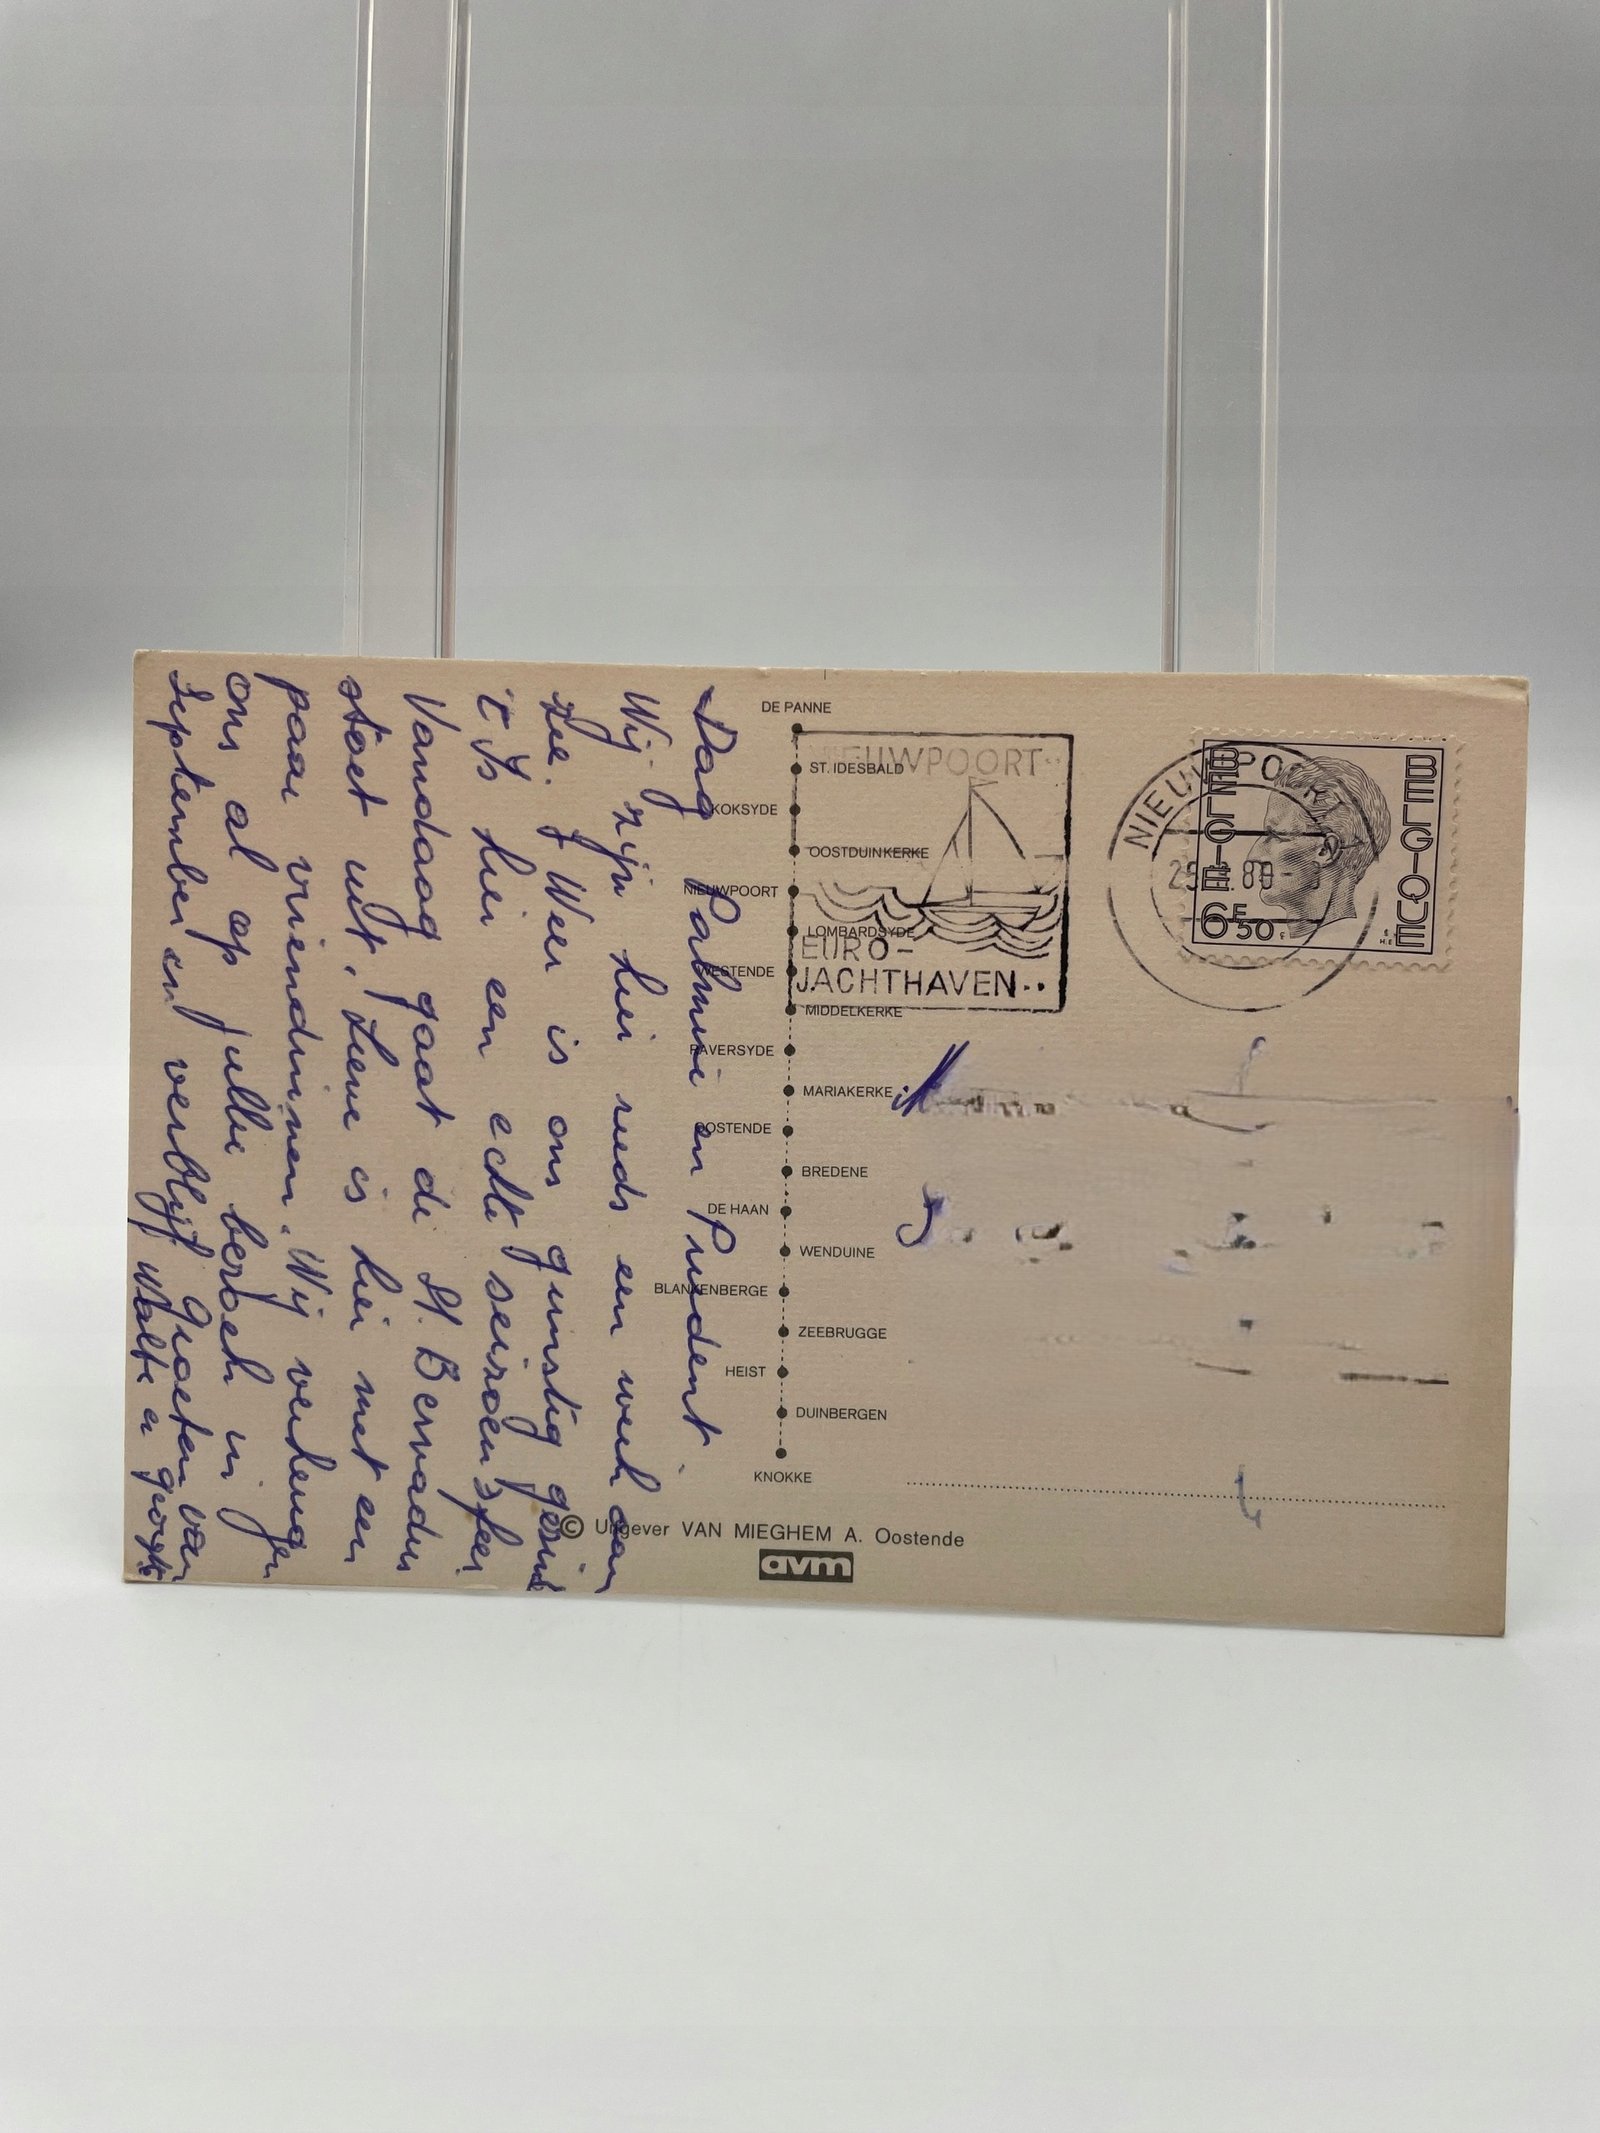 Dag Palmie en Prudent
Wij zijn hier reeds een week aan
zee. 't Weer is ons gunstig gezind
't Is hier een echte seizoensfeer
Vandaag gaat de St. Bernardus
stoet uit. Lieve is hier met een
paar vriendinnen. Wij verheugen
ons al op jullie bezoek in
September en verblijf
Groeten van
Walter en
DE PANNE
ST. IDESBALD
KOKSYDE
OOSTDUINKERKE
NIEUWPOORT
LOMBARDSYDE
WESTENDE
MIDDELKERKE
RAVERSYDE
MARIAKERKE
OOSTENDE
BREDENE
DE HAAN
WENDUINE
BLANKENBERGE
ZEEBRUGGE
HEIST
DUINBERGEN
KNOKKE
© Uitgever VAN MIEGHEM A. Oostende
avm
NIEUWPOORT
EURO-
JACHTHAVEN..
NIEUWPOORT
BELGIE
BELGIQUE
6F50